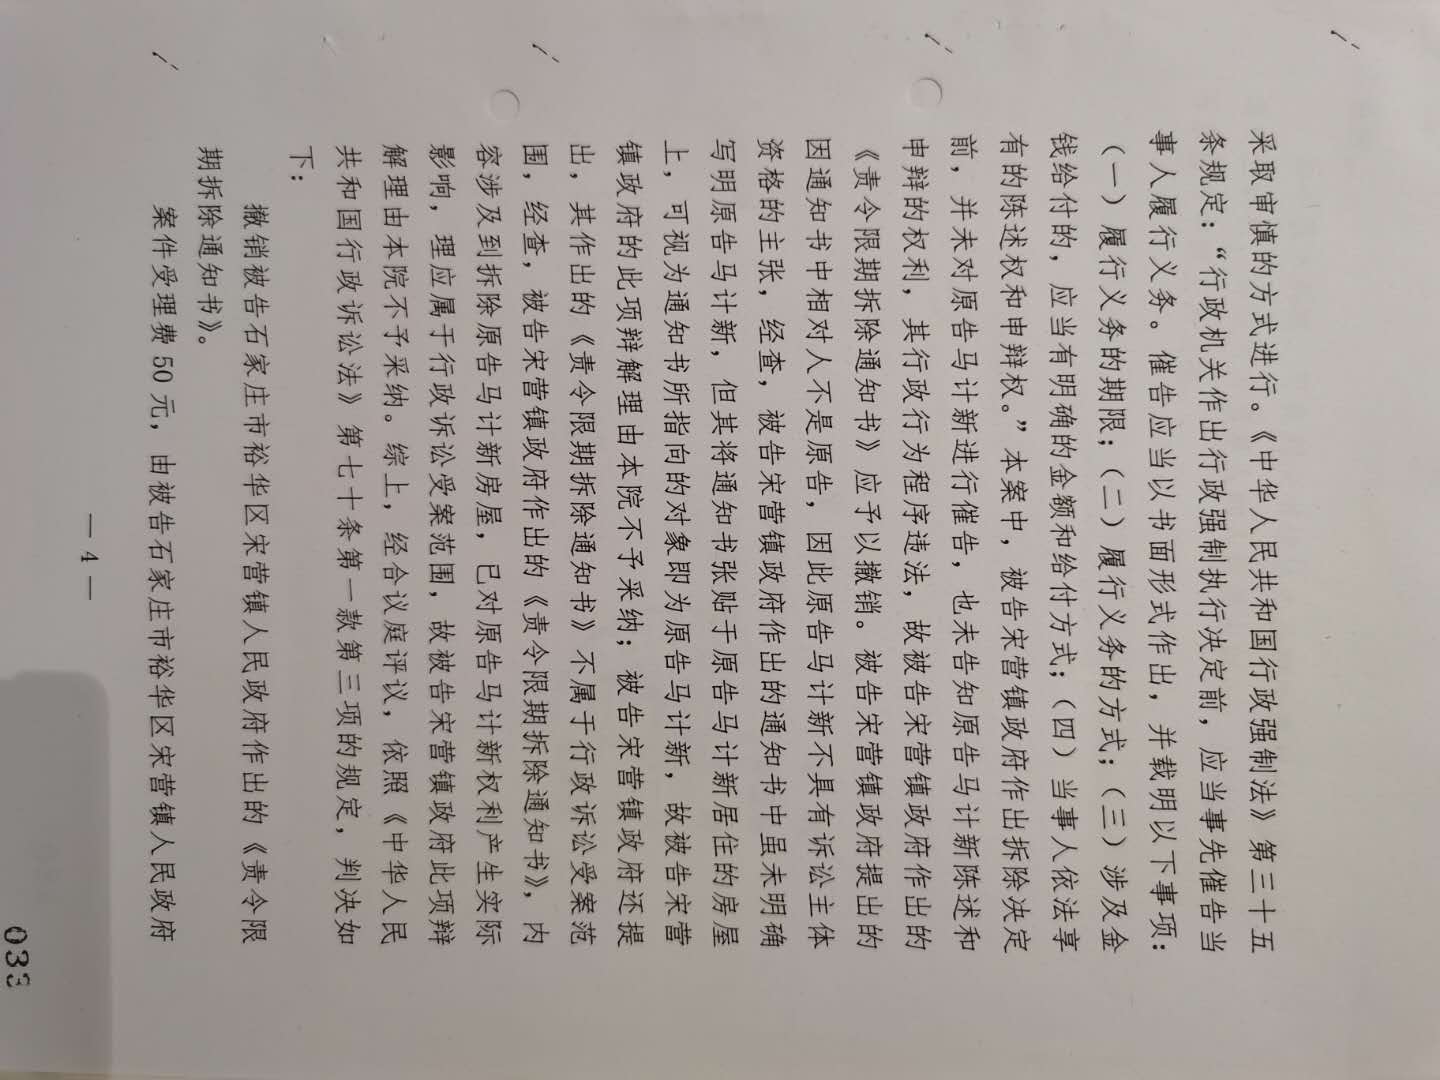 采取审慎的方式进行。《中华人民共和国行政强制法》第三十五
条规定：“行政机关作出行政强制执行决定前，应当事先催告当
事人履行义务。催告应当以书面形式作出，并载明以下事项：
（一）履行义务的期限；（二）履行义务的方式；（三）涉及金
钱给付的，应当有明确的金额和给付方式；（四）当事人依法享
有的陈述权和申辩权。”本案中，被告宋营镇政府作出拆除决定
前，并未对原告马计新进行催告，也未告知原告马计新陈述和
申辩的权利，其行政行为程序违法，故被告宋营镇政府作出的
《责令限期拆除通知书》应予以撤销。被告宋营镇政府提出的
因通知书中相对人不是原告，因此原告马计新不具有诉讼主体
资格的主张，经查，被告宋营镇政府作出的通知书中虽未明确
写明原告马计新，但其将通知书张贴于原告马计新居住的房屋
上，可视为通知书所指向的对象即为原告马计新，故被告宋营
镇政府的此项辩解理由本院不予采纳；被告宋营镇政府还提
出，其作出的《责令限期拆除通知书》不属于行政诉讼受案范
围，经查，被告宋营镇政府作出的《责令限期拆除通知书》，内
容涉及到拆除原告马计新房屋，已对原告马计新权利产生实际
影响，理应属于行政诉讼受案范围，故被告宋营镇政府此项辩
解理由本院不予采纳。综上，经合议庭评议，依照《中华人民
共和国行政诉讼法》第七十条第一款第三项的规定，判决如
下：
撤销被告石家庄市裕华区宋营镇人民政府作出的《责令限
期拆除通知书》。
案件受理费 50 元，由被告石家庄市裕华区宋营镇人民政府
— 4 —
033